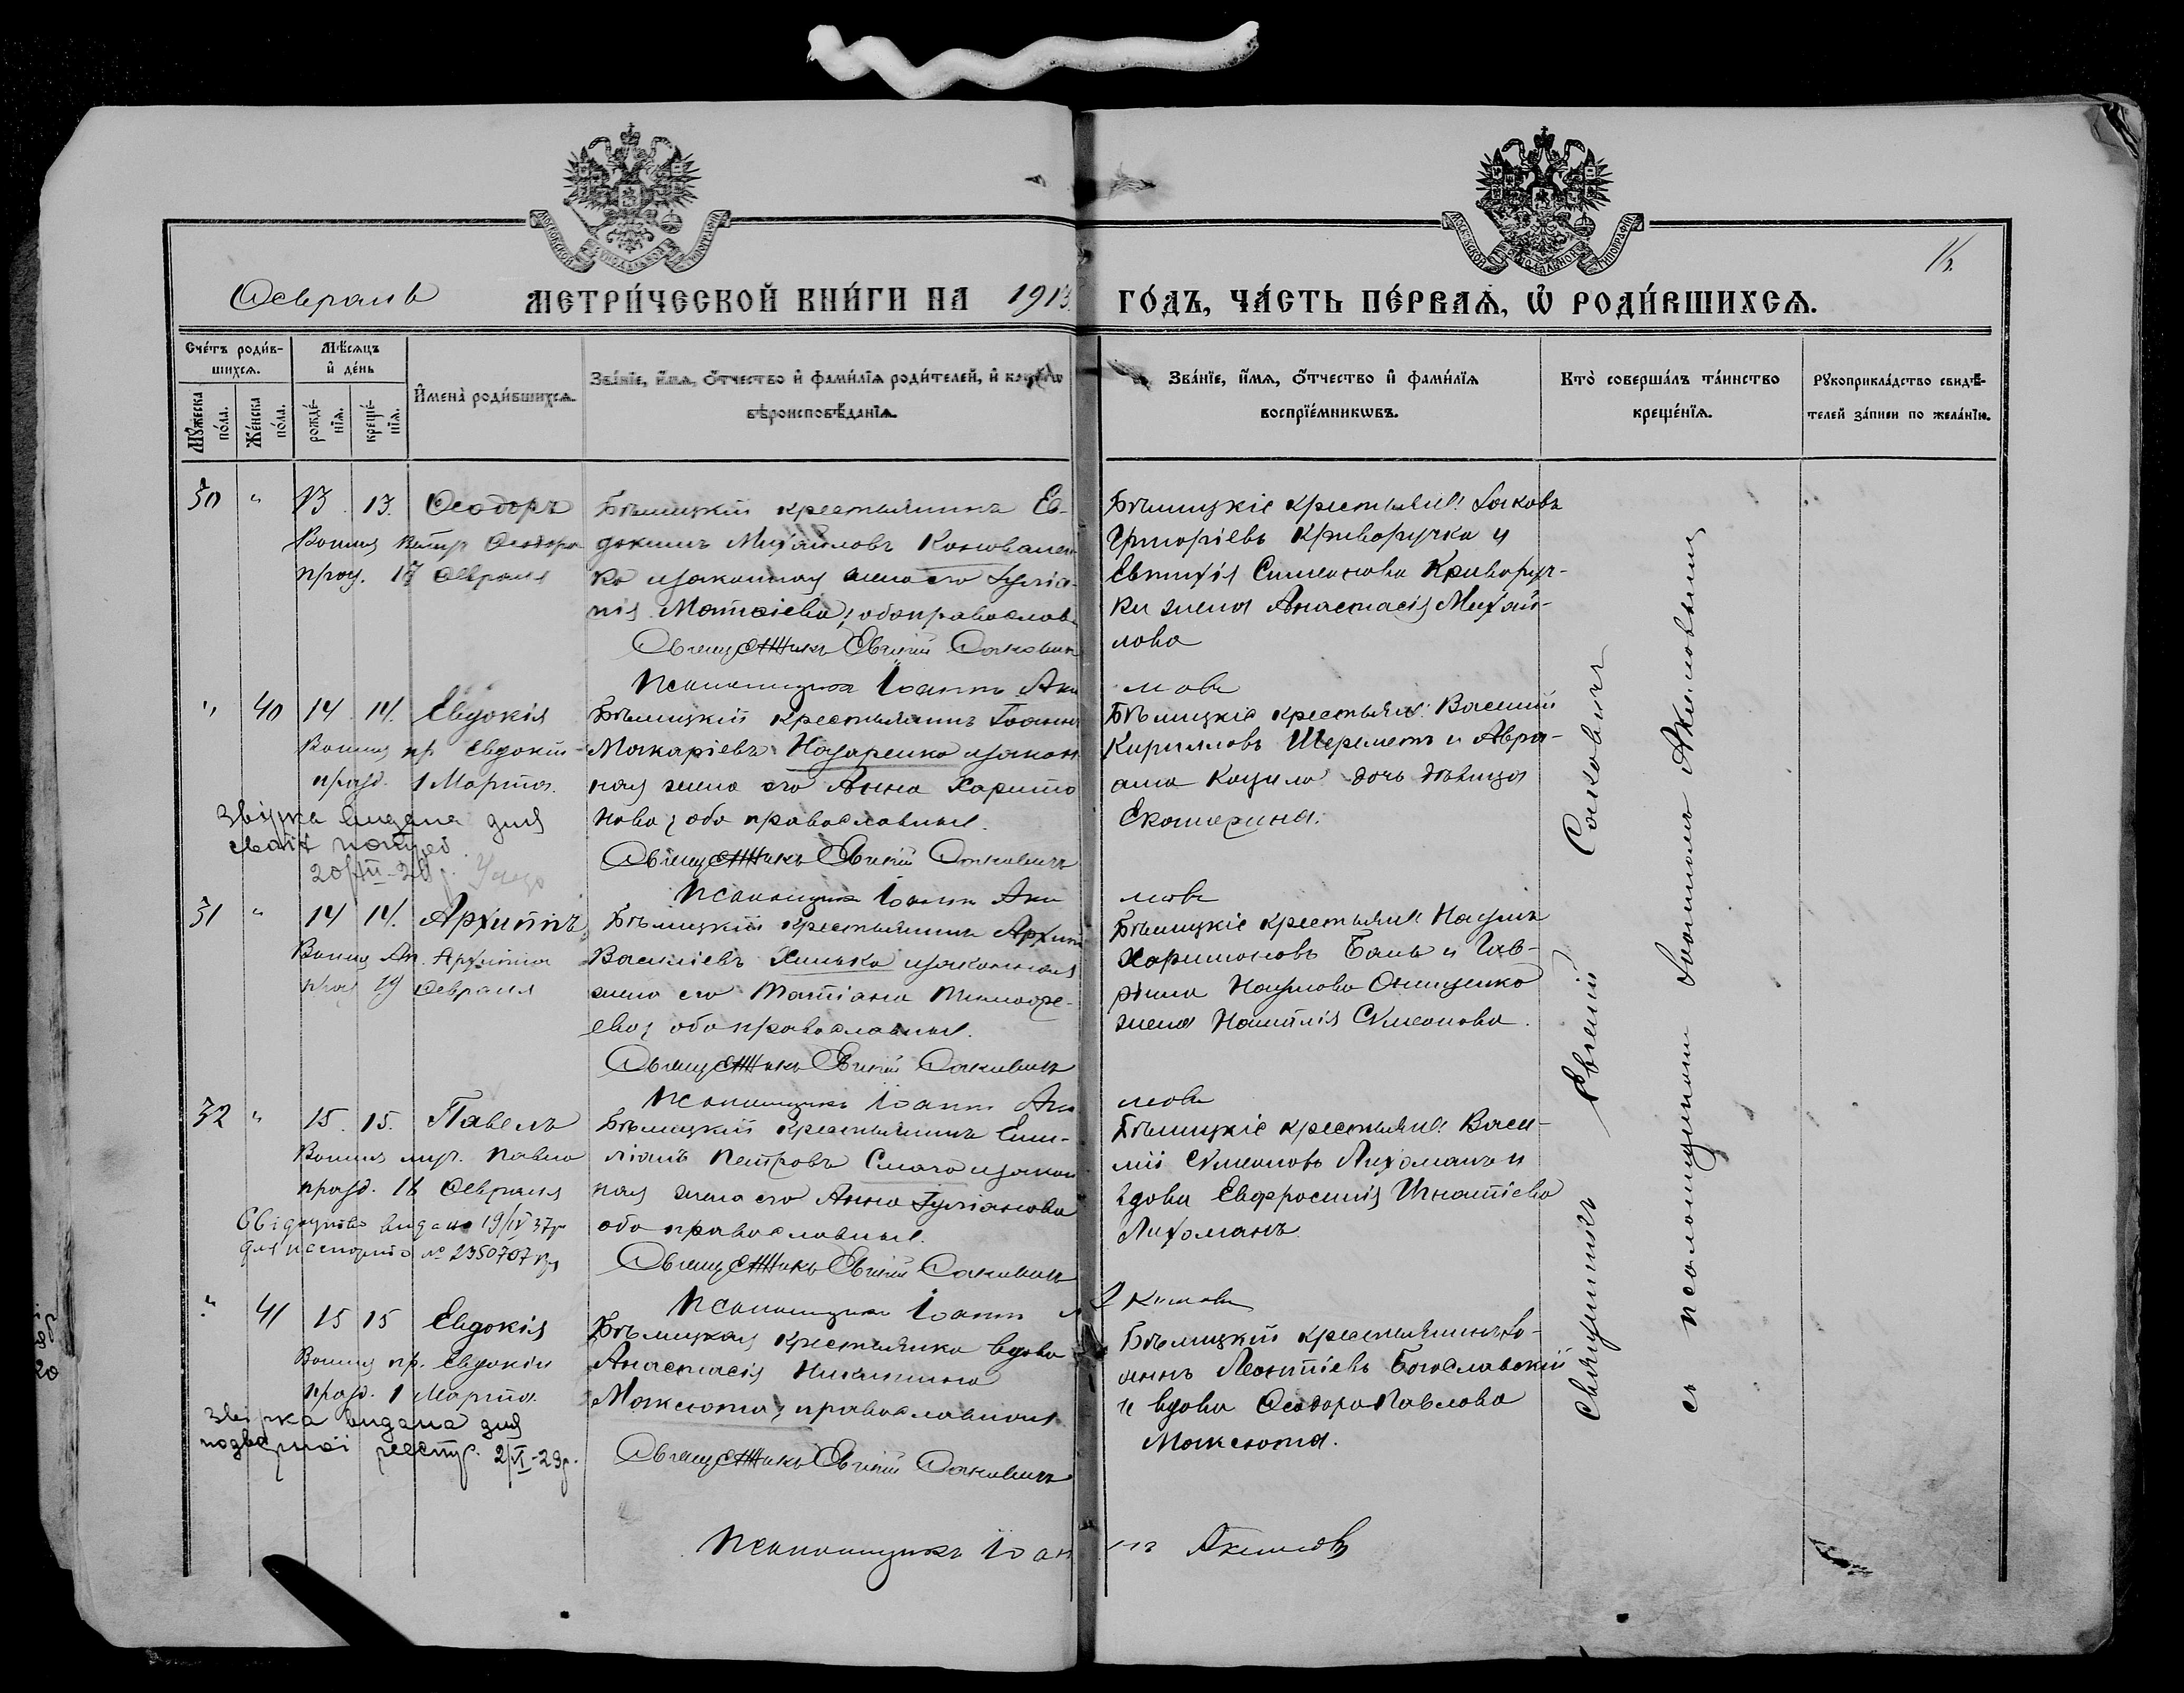 Февраль
МЕТРИ́ЧЕСКОЙ КНИ́ГИ НА 1913
ГО́ДЪ, ЧА́СТЬ ПЕ́РВАѦ, Ѽ РОДИ́ВШИХСѦ.
Сче́тъ роди́в-
шихсѧ.
Мѣ́сѧцъ
и҆ де́нь
Мꙋ́жеска
по́ла.
Же́нска
по́ла.
рожде́-
нїѧ.
креще́-
нїѧ.
И҆мена̀ роди́вшихсѧ.
Зва́нїе, и҆́мѧ, ѻ҆́тчество и҆ фами́лїѧ роди́телей, и҆
вѣроисповѣ́данїѧ.
Зва́нїе, и҆́мѧ, ѻ҆́тчество и҆ фами́лїѧ
воспрїе́мникѡвъ.
Кто̀ соверша́лъ та́инство
креще́нїѧ.
Рꙋкоприкла́дство свидѣ́-
телей за́писи по жела́нїю.
30 " 13. 13. Ѳеодоръ
Воина Ѳеодора
праз. 17 Февраля
Бѣлицкій крестьянинъ Ев-
докимъ Михаиловъ Коновален
ко и законная жена его Іуліа-
нія Матѳіева, оба православ
Священникъ Евгеній Сакович
Псаломщикъ Іоаннъ Аки
Бѣлицкіе крестьяне: Іаковъ
Григоріевъ Криворучка и
Евтихія Симеонова Криворуч-
ки жена Анастасія Михай-
лова
мовъ
" 40 14 14. Евдокія
пр. Евдокіи
празд. 1 Марта.
Звірка видана для
20/XII-28 р.
Бѣлицкій крестьянинъ Іоаннъ
Макаріевъ Назаренко и закон
ная жена его Анна Харито
нова, оба православные.
Священникъ Евгеній Саковичъ
Псаломщикъ Іоаннъ Аки
Бѣлицкіе крестьяне: Василій
Кирилловъ Шереметъ и Авра-
ама Кацило дочь дѣвица
Екатерина.
мовъ
31 " 14 14. Архиппъ
Ап. Архиппа
праз 19 Февраля
Бѣлицкій крестьянинъ Архип
Василіевъ Хилько и законная
жена его Татіана Тимоѳе-
ева, оба православные.
Священникъ Евгеній Саковичъ
Псаломщикъ Іоаннъ Аки
Бѣлицкіе крестьяне Наумъ
Харитоновъ Баль и Гав-
ріила Наумова Онищенко
жена Наталія Сѵмеонова.
мовъ
32 " 15. 15. Павелъ
муч. Павла
празд. 16 Февраля
Свідоцтво видано 19/IV 37р
для паспорта № 2350707
Бѣлицкій крестьянинъ Еми-
ліанъ Петровъ Смаго и закон
ная жена его Анна Іуліанова
оба православные.
Священникъ Евгеній Саковичъ
Псаломщикъ Іоаннъ А
Бѣлицкіе крестьяне: Васи-
лій Сѵмеоновъ Лихоманъ и
вдова Евфросинія Игнатіева
Лихоманъ.
кимовъ
" 41 15 15 Евдокія
пр. Евдокіи
празд. 1 Марта.
Звірка видана для
подвірної реєстр. 2/XI-29р.
Бѣлицкая крестьянка вдова
Анастасія Никитина
Максюта, православная
Священникъ Евгеній Саковичъ
Псаломщикъ Іоан
Бѣлицкій крестьянинъ Іо-
аннъ Леонтіевъ Богославскій
и вдова Ѳеодора Павлова
Максюта.
нъ Акимовъ
Священникъ Евгеній Саковичъ
съ псаломщикомъ Іоанномъ Акимовымъ